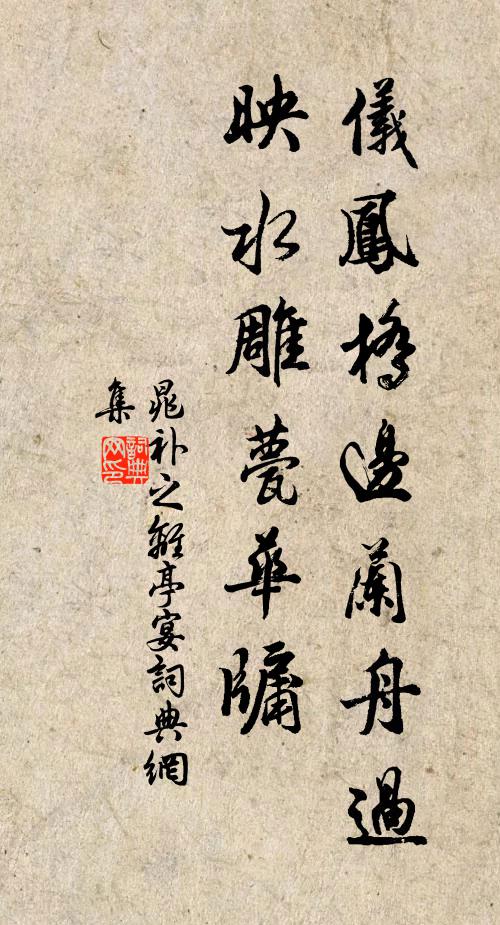 儀鳳橋邊蘭舟過
映水雕甍華牖
晁补之離亭宴詞典網
集
詞典网印